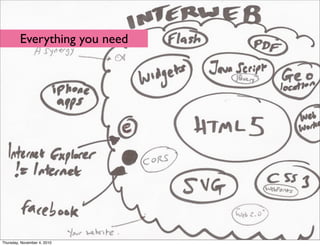 INTERWEB
Everything you need
A Synergy
Flash
PDF
Widgets
JavaScript
library
Geo
location
iphone
apps
e
HTML5
Web
Worke
Internet Explorer
!= Internet
CORS
SVG
CSS3
webfonts
facebook
Web 2.0
Your website.
Thursday, November 4, 2010